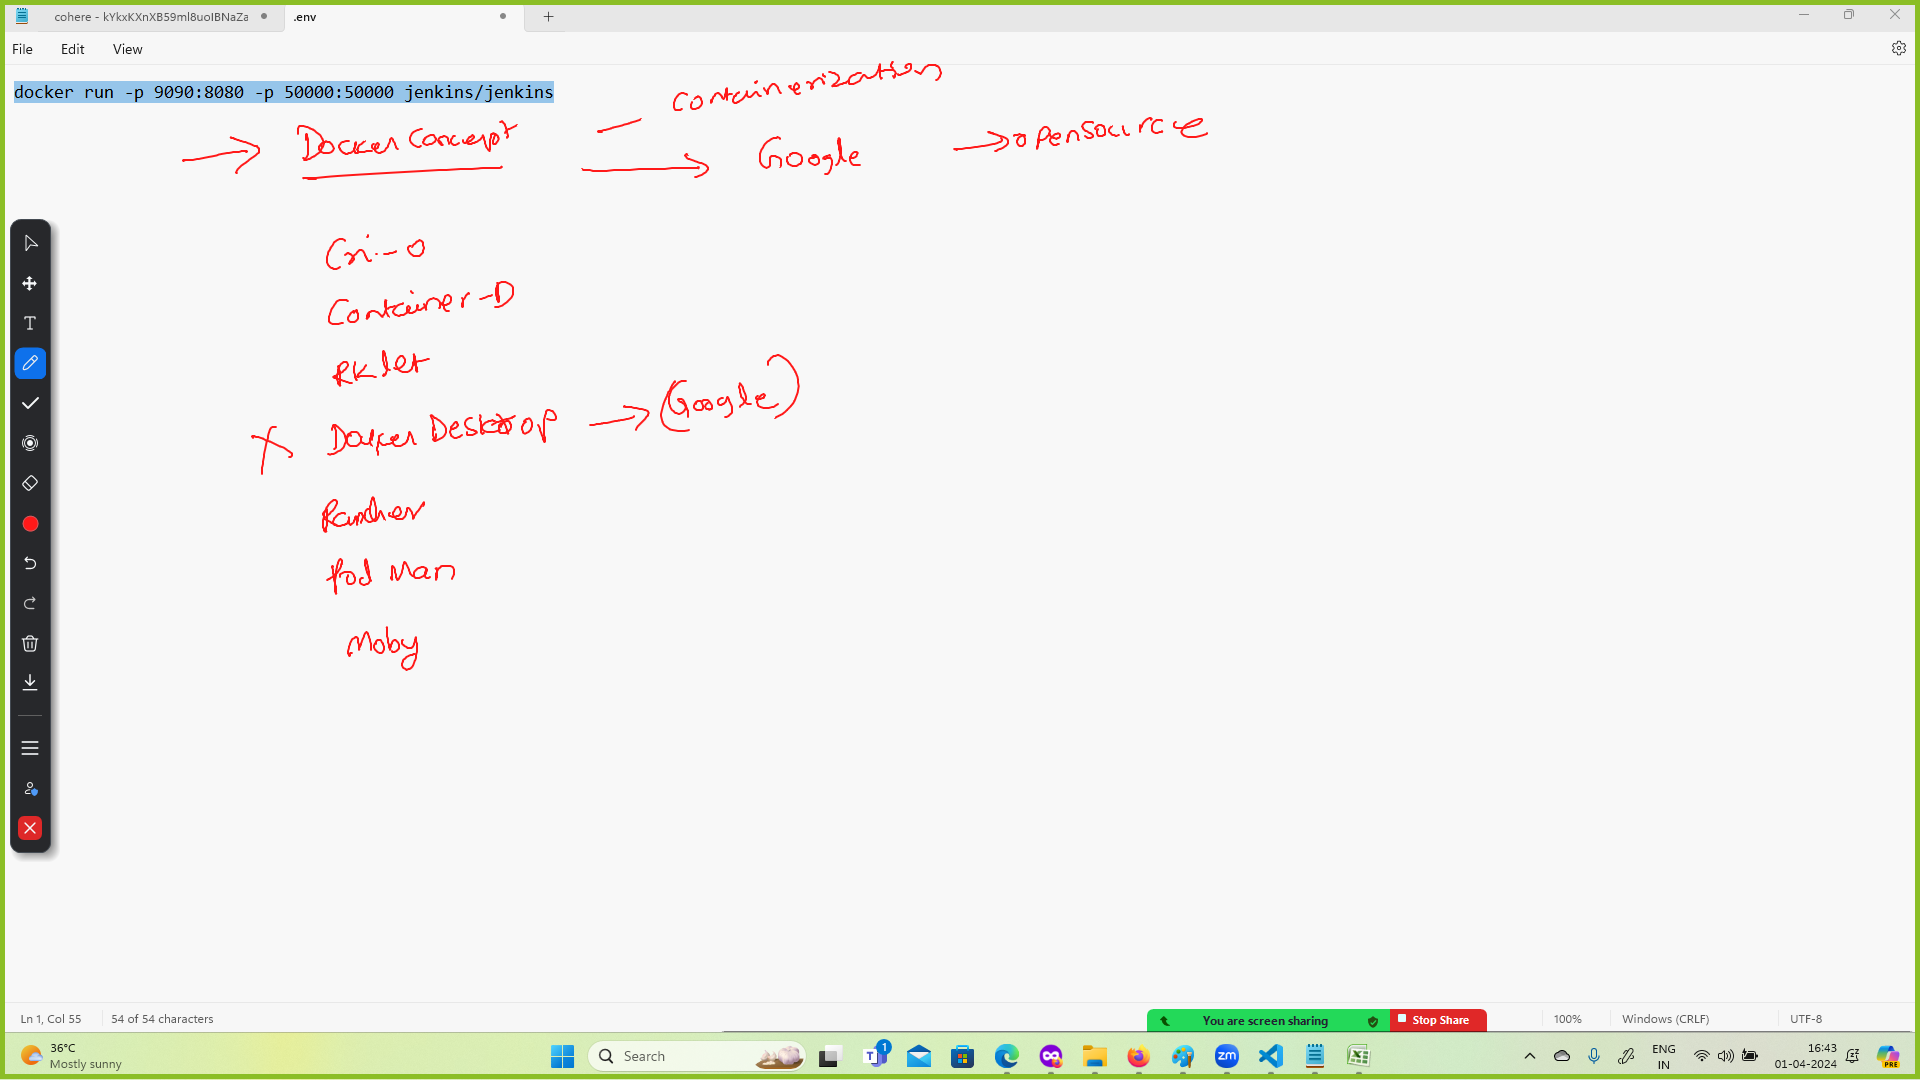 cohere - kYkxKXnXB59ml8uoIBNaZa
.env
File Edit View
docker run -p 9090:8080 -p 50000:50000 jenkins/jenkins
Containerization
Docker Concept
Google
opensource
Cri-o
Container-D
RKlet
Docker Desktop
(Google)
Rancher
Pod Man
Moby
Ln 1, Col 55
54 of 54 characters
You are screen sharing
Stop Share
100%
Windows (CRLF)
UTF-8
36°C
Mostly sunny
Search
1
zm
ENG
IN
16:43
01-04-2024
PRE